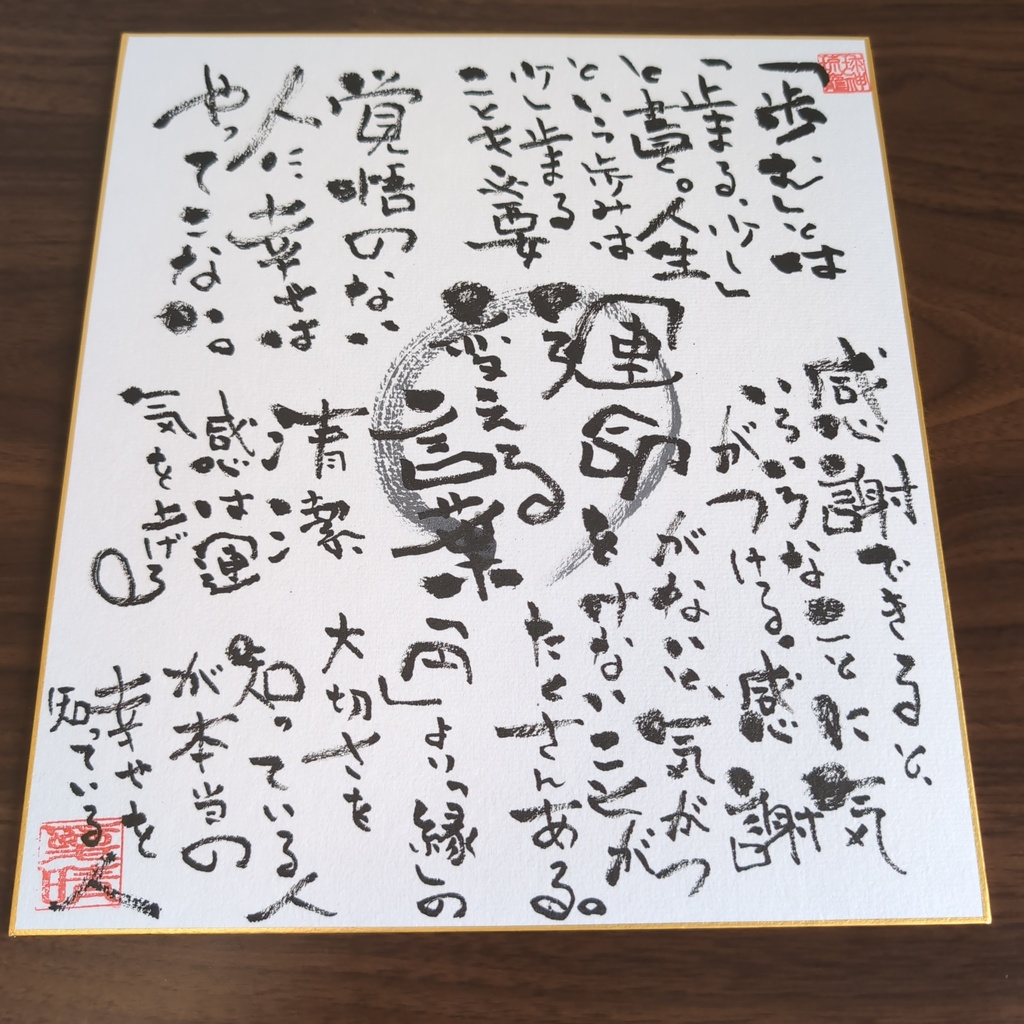 「歩む」とは
「止まる、少し」
と書く。人生
という歩みは
少し止まる
ことも必要
覚悟のない
人に幸せは
やってこない。
運命を
変える
言葉
感謝できると、
いろいろなことに気
がつける。感謝
がないと、気がつ
けないことが
たくさんある。
清潔
感は運
気を上げる
「円」より「縁」の
大切さを
知っている人
が本当の
幸せを
知っている人